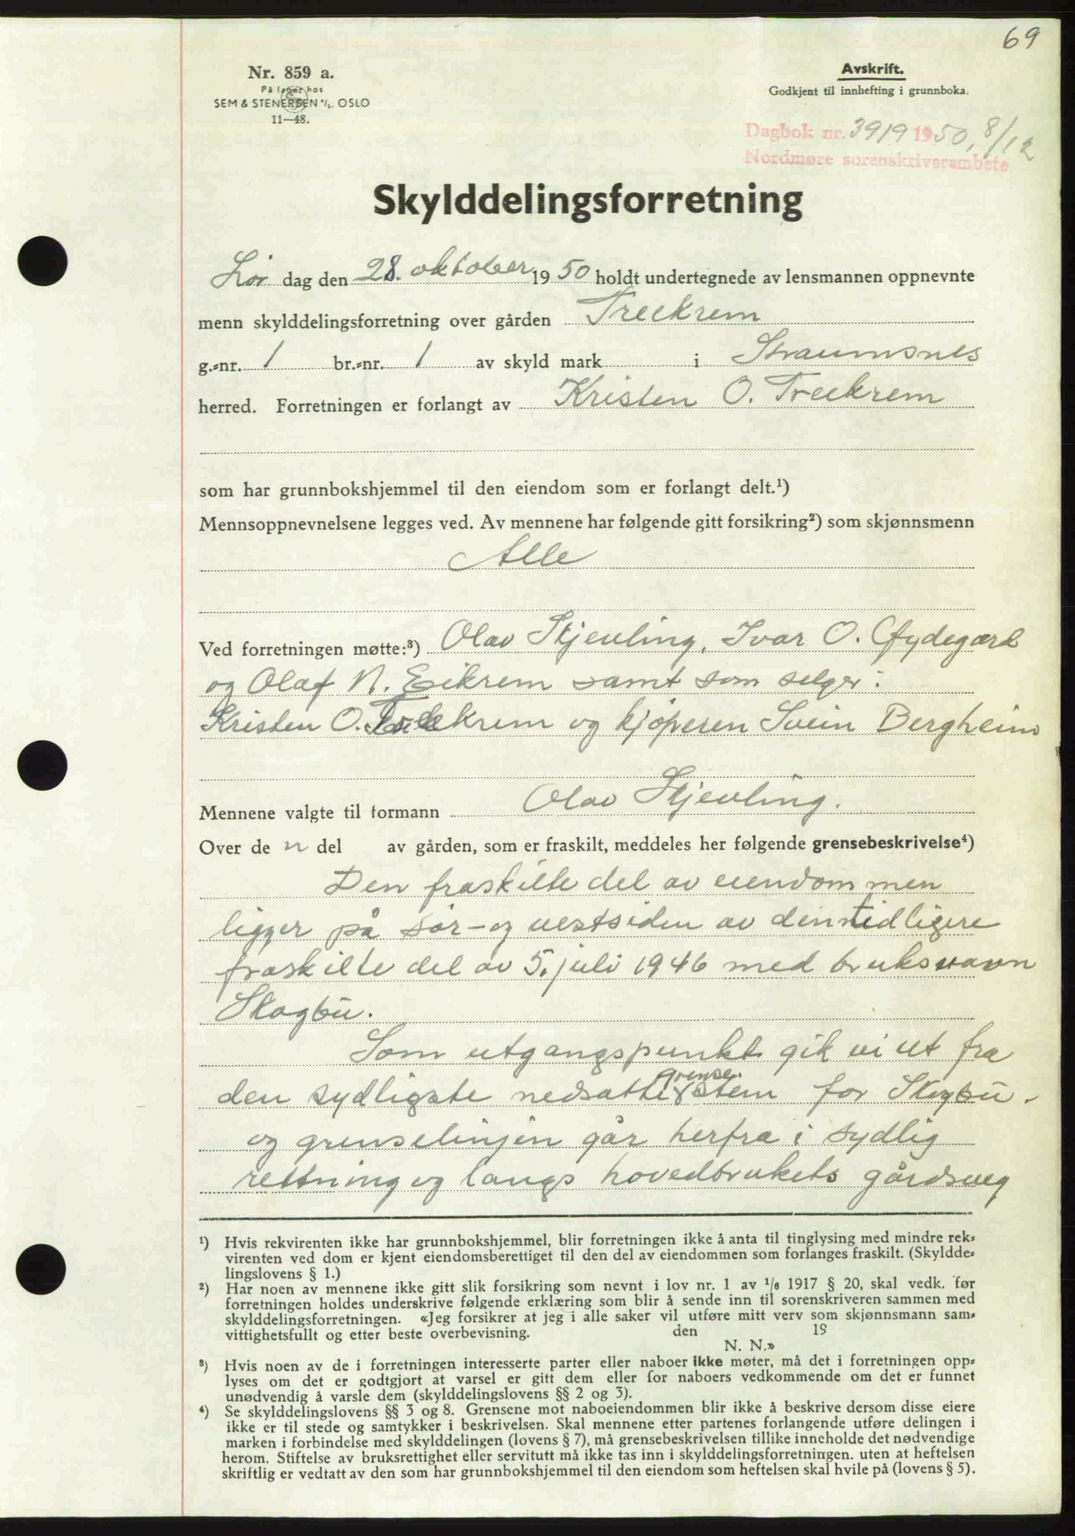 69
Nr. 859 a.
På lager hos
SEM & STENERSEN A/S. OSLO
11—48.
Avskrift.
Godkjent til innhefting i grunnboka.
Dagbok nr. 3919 1950, 8/12
Nordmøre sorenskriverembete
Skylddelingsforretning
Lør dag den 28. oktober 1950 holdt undertegnede av lensmannen oppnevnte
menn skylddelingsforretning over gården Treekrem
g.-nr. 1 br.-nr. 1 av skyld mark i Straumsnes
herred. Forretningen er forlangt av Kristen O. Treekrem
som har grunnbokshjemmel til den eiendom som er forlangt delt.¹)
Mennsoppnevnelsene legges ved. Av mennene har følgende gitt forsikring²) som skjønnsmenn
Alle
Ved forretningen møtte:³) Olav Skjevling, Ivar O. Øydegard
og Olaf N. Eikrem samt som selger:
Kristen O. Treekrem og kjøperen Svein Bergheim
Mennene valgte til formann Olav Skjevling.
Over de n del av gården, som er fraskilt, meddeles her følgende grensebeskrivelse⁴)
Den fraskilte del av eiendommen
ligger på sør- og vestsiden av den tidligere
fraskilte del av 5. juli 1946 med bruksnavn
Skogbu.
Som utgangspunkt gik vi ut fra
grense
den sydligste nedsatte x stein for Skogbu.
og grenselinjen går herfra i sydlig
rettning og langs hovedbrukets gårdsveg
¹) Hvis rekvirenten ikke har grunnbokshjemmel, blir forretningen ikke å anta til tinglysing med mindre rek-
virenten ved dom er kjent eiendomsberettiget til den del av eiendommen som forlanges fraskilt. (Skyldde-
lingslovens § 1.)
²) Har noen av mennene ikke gitt slik forsikring som nevnt i lov nr. 1 av 1/6 1917 § 20, skal vedk. før
forretningen holdes underskrive følgende erklæring som blir å sende inn til sorenskriveren sammen med
skylddelingsforretningen. «Jeg forsikrer at jeg i alle saker vil utføre mitt verv som skjønnsmann sam-
vittighetsfullt og etter beste overbevisning. den 19
N. N.»
³) Hvis noen av de i forretningen interesserte parter eller naboer ikke møter, må det i forretningen opp-
lyses om det er godtgjort at varsel er gitt dem eller for naboers vedkommende om det er funnet
unødvendig å varsle dem (skylddelingslovens §§ 2 og 3).
⁴) Se skylddelingslovens §§ 3 og 8. Grensene mot naboeiendommen blir ikke å beskrive dersom disse eiere
ikke er til stede og samtykker i beskrivelsen. Skal mennene etter partenes forlangende utføre delingen i
marken i forbindelse med skylddelingen (lovens § 7), må grensebeskrivelsen tillike inneholde det nødvendige
herom. Stiftelse av bruksrettighet eller servitutt må ikke tas inn i skylddelingsforretningen. uten at heftelsen
skriftlig er vedtatt av den som har grunnbokshjemmel til den eiendom som heftelsen skal hvile på (lovens § 5).